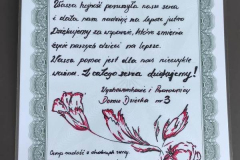 Wasza hojność poruszyła nasze serca
i dała nam nadzieję na lepsze jutro
Dziękujemy za wsparcie, które zmienia
życie naszych dzieci na lepsze.
Wasza pomoc jest dla nas niezwykle
ważna. Z całego serca dziękujemy!
Wychowankowie i Pracownicy
Domu Dziecka nr 3